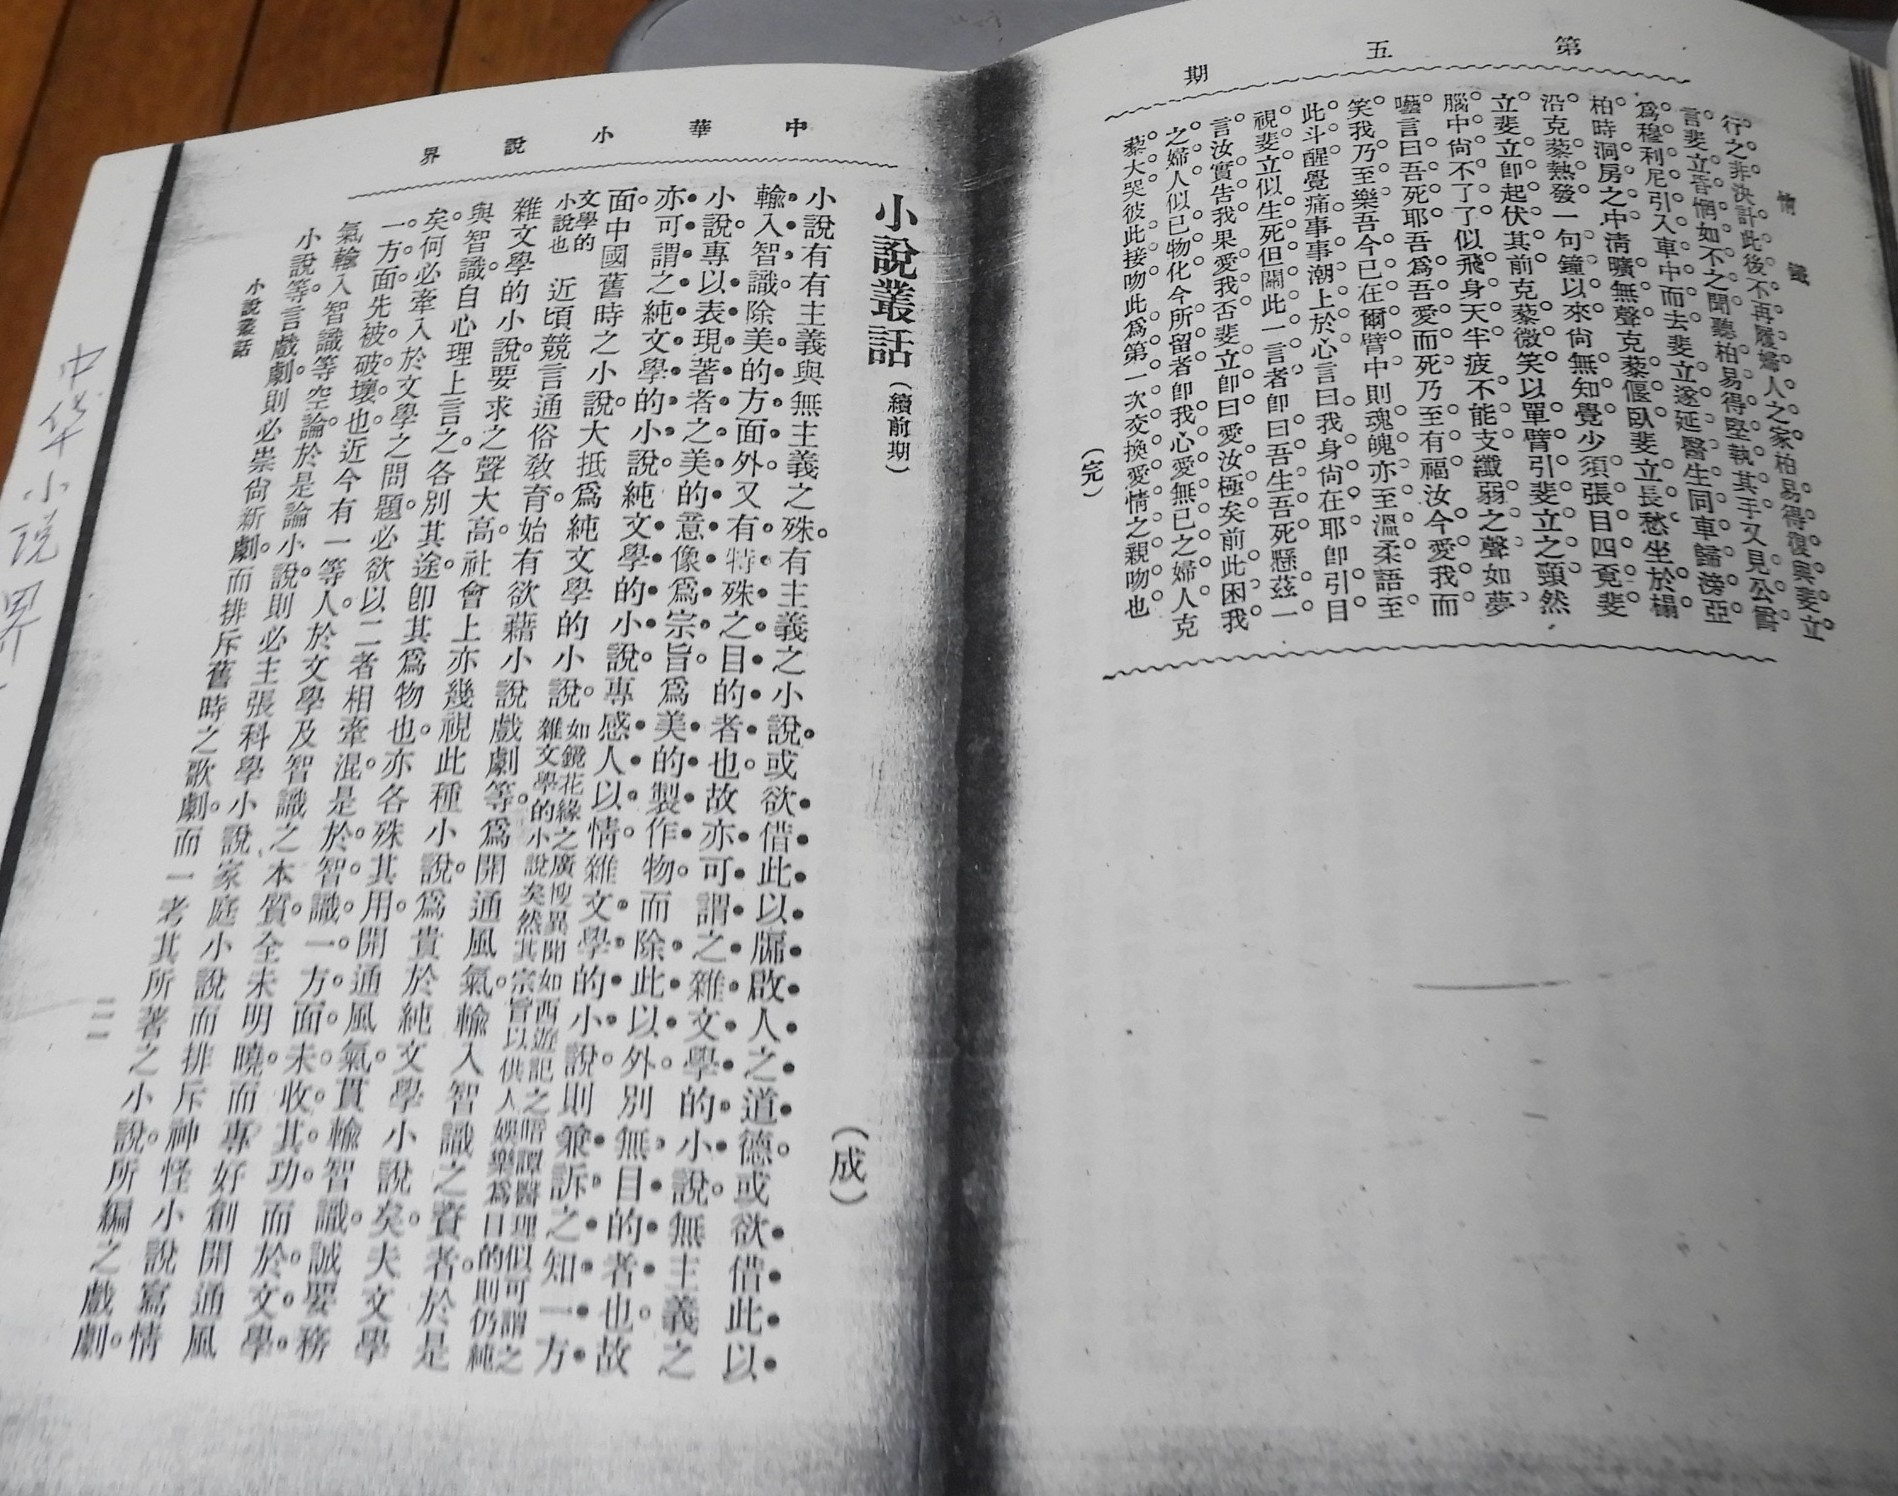 第五期
情鐵
行之非決計此後不再履婦人之家柏易得復與斐立
言斐立昏惘如不之聞聽柏易得堅執其手又見公爵
爲穆利尼引入車中而去斐立遂延醫生同車歸滂亞
柏時洞房之中淸曠無聲克藜偃臥斐立長愁坐於榻
沿克藜熱發一句鐘以來尙無知覺少須張目四覓斐
立斐立卽起伏其前克藜微笑以單臂引斐立之頸然
腦中尙不了了似飛身天半疲不能支纖弱之聲如夢
囈言曰吾死耶吾爲吾愛而死乃至有福汝今愛我而
笑我乃至樂吾今已在爾臂中則魂魄亦至溫柔語至
此斗醒覺痛事事潮上於心言曰我身尙在耶卽引目
視斐立似生死但關此一言者卽曰吾生吾死懸茲一
言汝實告我果愛我否斐立卽曰愛汝極矣前此困我
之婦人似已物化今所留者卽我心愛無已之婦人克
藜大哭彼此接吻此爲第一次交換愛情之親吻也
（完）
中華小說界
小說叢話（續前期）
（成）
小說有有主義與無主義之殊。有主義之小說。或欲借此以牖啟人之道德。或欲借此以
輸入智識。除美的方面外。又有特殊之目的者也。故亦可謂之雜文學的小說。無主義之
小說。專以表現著者之美的意像爲宗旨。爲美的製作物。而除此以外。別無目的者也。故
亦可謂之純文學的小說。純文學的小說。專感人以情。雜文學的小說。則兼訴之知一方
面。中國舊時之小說。大抵爲純文學的小說。如鏡花緣之廣搜異聞如西遊記之暗譚醫理似可謂之
雜文學的小說矣然其宗旨以供人娛樂爲目的則仍純
文學的
小說也
近頃競言通俗敎育。始有欲藉小說戲劇等。爲開通風氣。輸入智識之資者。於是
雜文學的小說。要求之聲大高。社會上亦幾視此種小說。爲貴於純文學小說矣。夫文學
與智識。自心理上言之。各別其途。卽其爲物也。亦各殊其用。開通風氣。貫輸智識。誠要務
矣。何必牽入於文學之問題。必欲以二者相牽混。是於智識一方面。未收其功。而於文學
一方面。先被破壞也。近今有一等人。於文學及智識之本質。全未明曉。而專好創開通風
氣輸入智識等空論。於是論小說則必主張科學小說家庭小說。而排斥神怪小說寫情
小說等。言戲劇。則必崇尙新劇。而排斥舊時之歌劇。而一考其所著之小說。所編之戲劇。
小說叢話
二一
中华小说界